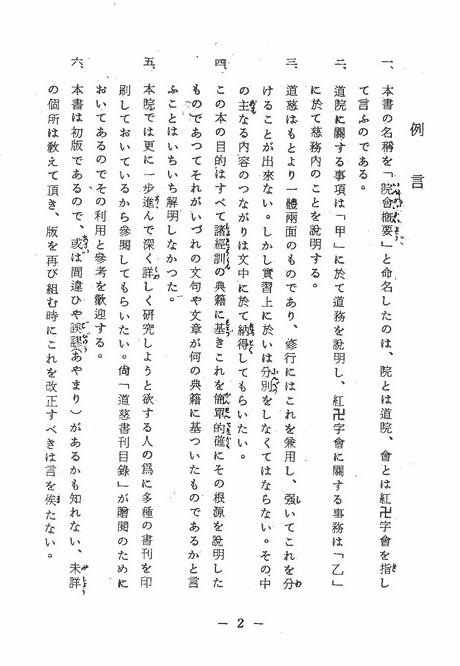 例言
一、本書の名稱を「院會概要」と命名したのは、院とは道院、會とは紅卍字會を指し
て言ふのである。
二、道院に關する事項は「甲」に於て道務を説明し、紅卍字會に關する事務は「乙」
に於て慈務内のことを説明する。
三、道慈はもとより一體兩面のものであり、修行にはこれを兼用し、强いてこれを分
けることが出來ない。しかし實習上に於いは分別をしなくてはならない。その中
の主なる内容のつながりは文中に於て納得してもらいたい。
四、この本の目的はすべて諸經訓の典籍に基きこれを簡單的確にその根源を説明した
ものであつてそれがいづれの文句や文章が何の典籍に基づいたものであるかと言
ふことはいちいち解明しなかつた。
五、本院では更に一步進んで深く詳しく研究しようと欲する人の爲に多種の書刊を印
刷しておいているから參閱してもらいたい。尙「道慈書刊目錄」が贈閱のために
おいてあるのでその利用と參考を歡迎する。
六、本書は初版であるので、或は間違ひや誤謬（あやまり）があるかも知れない、未詳
の個所は教えて頂き、版を再び組む時にこれを改正すべきは言を俟たない。
— 2 —